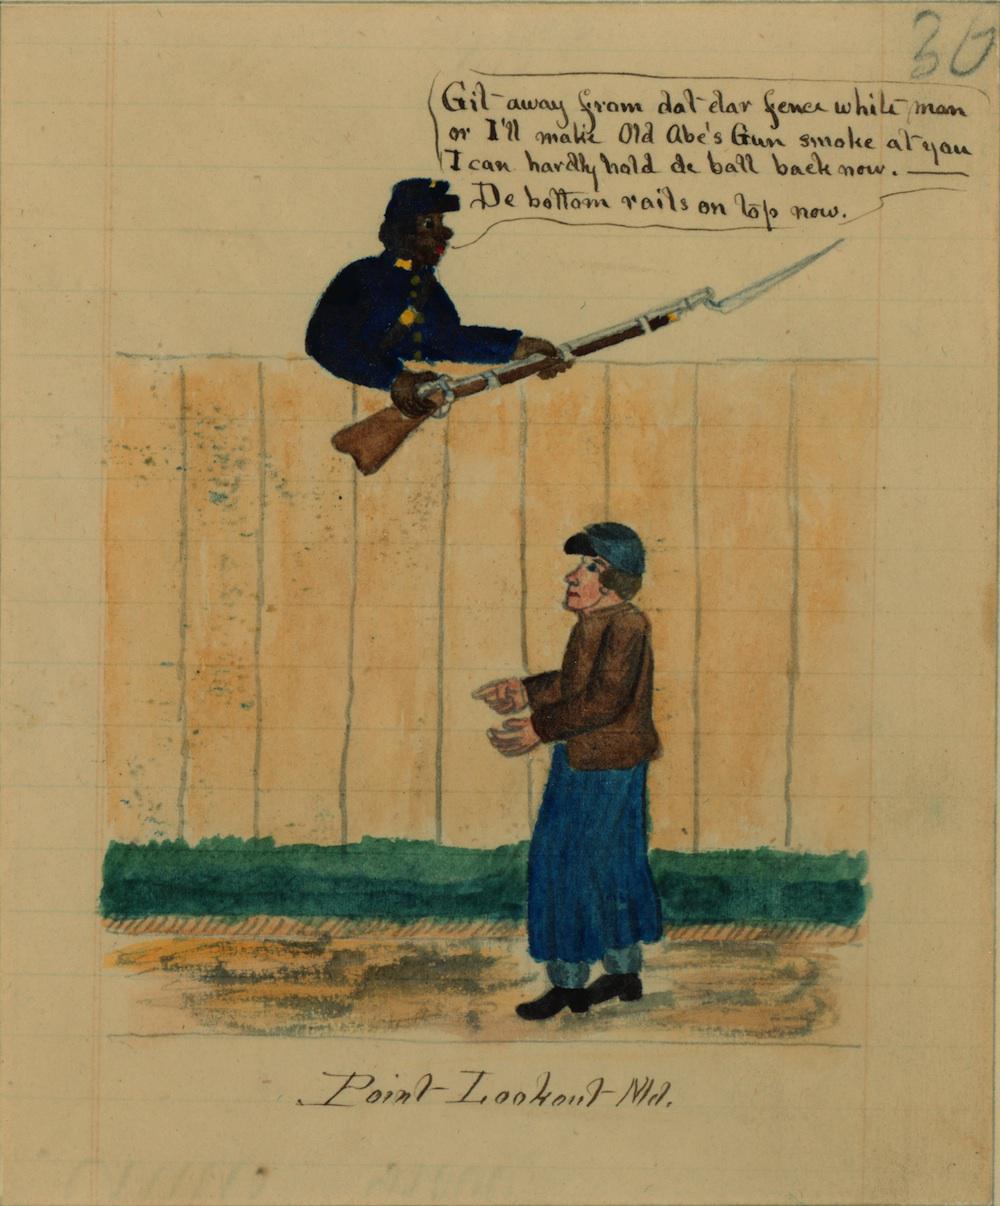 36
Git away from dat dar fence white man
or I'll make Old Abe's Gun smoke at you
I can hardly hold de ball back now.
De bottom rails on top now.
Point Lookout Md.